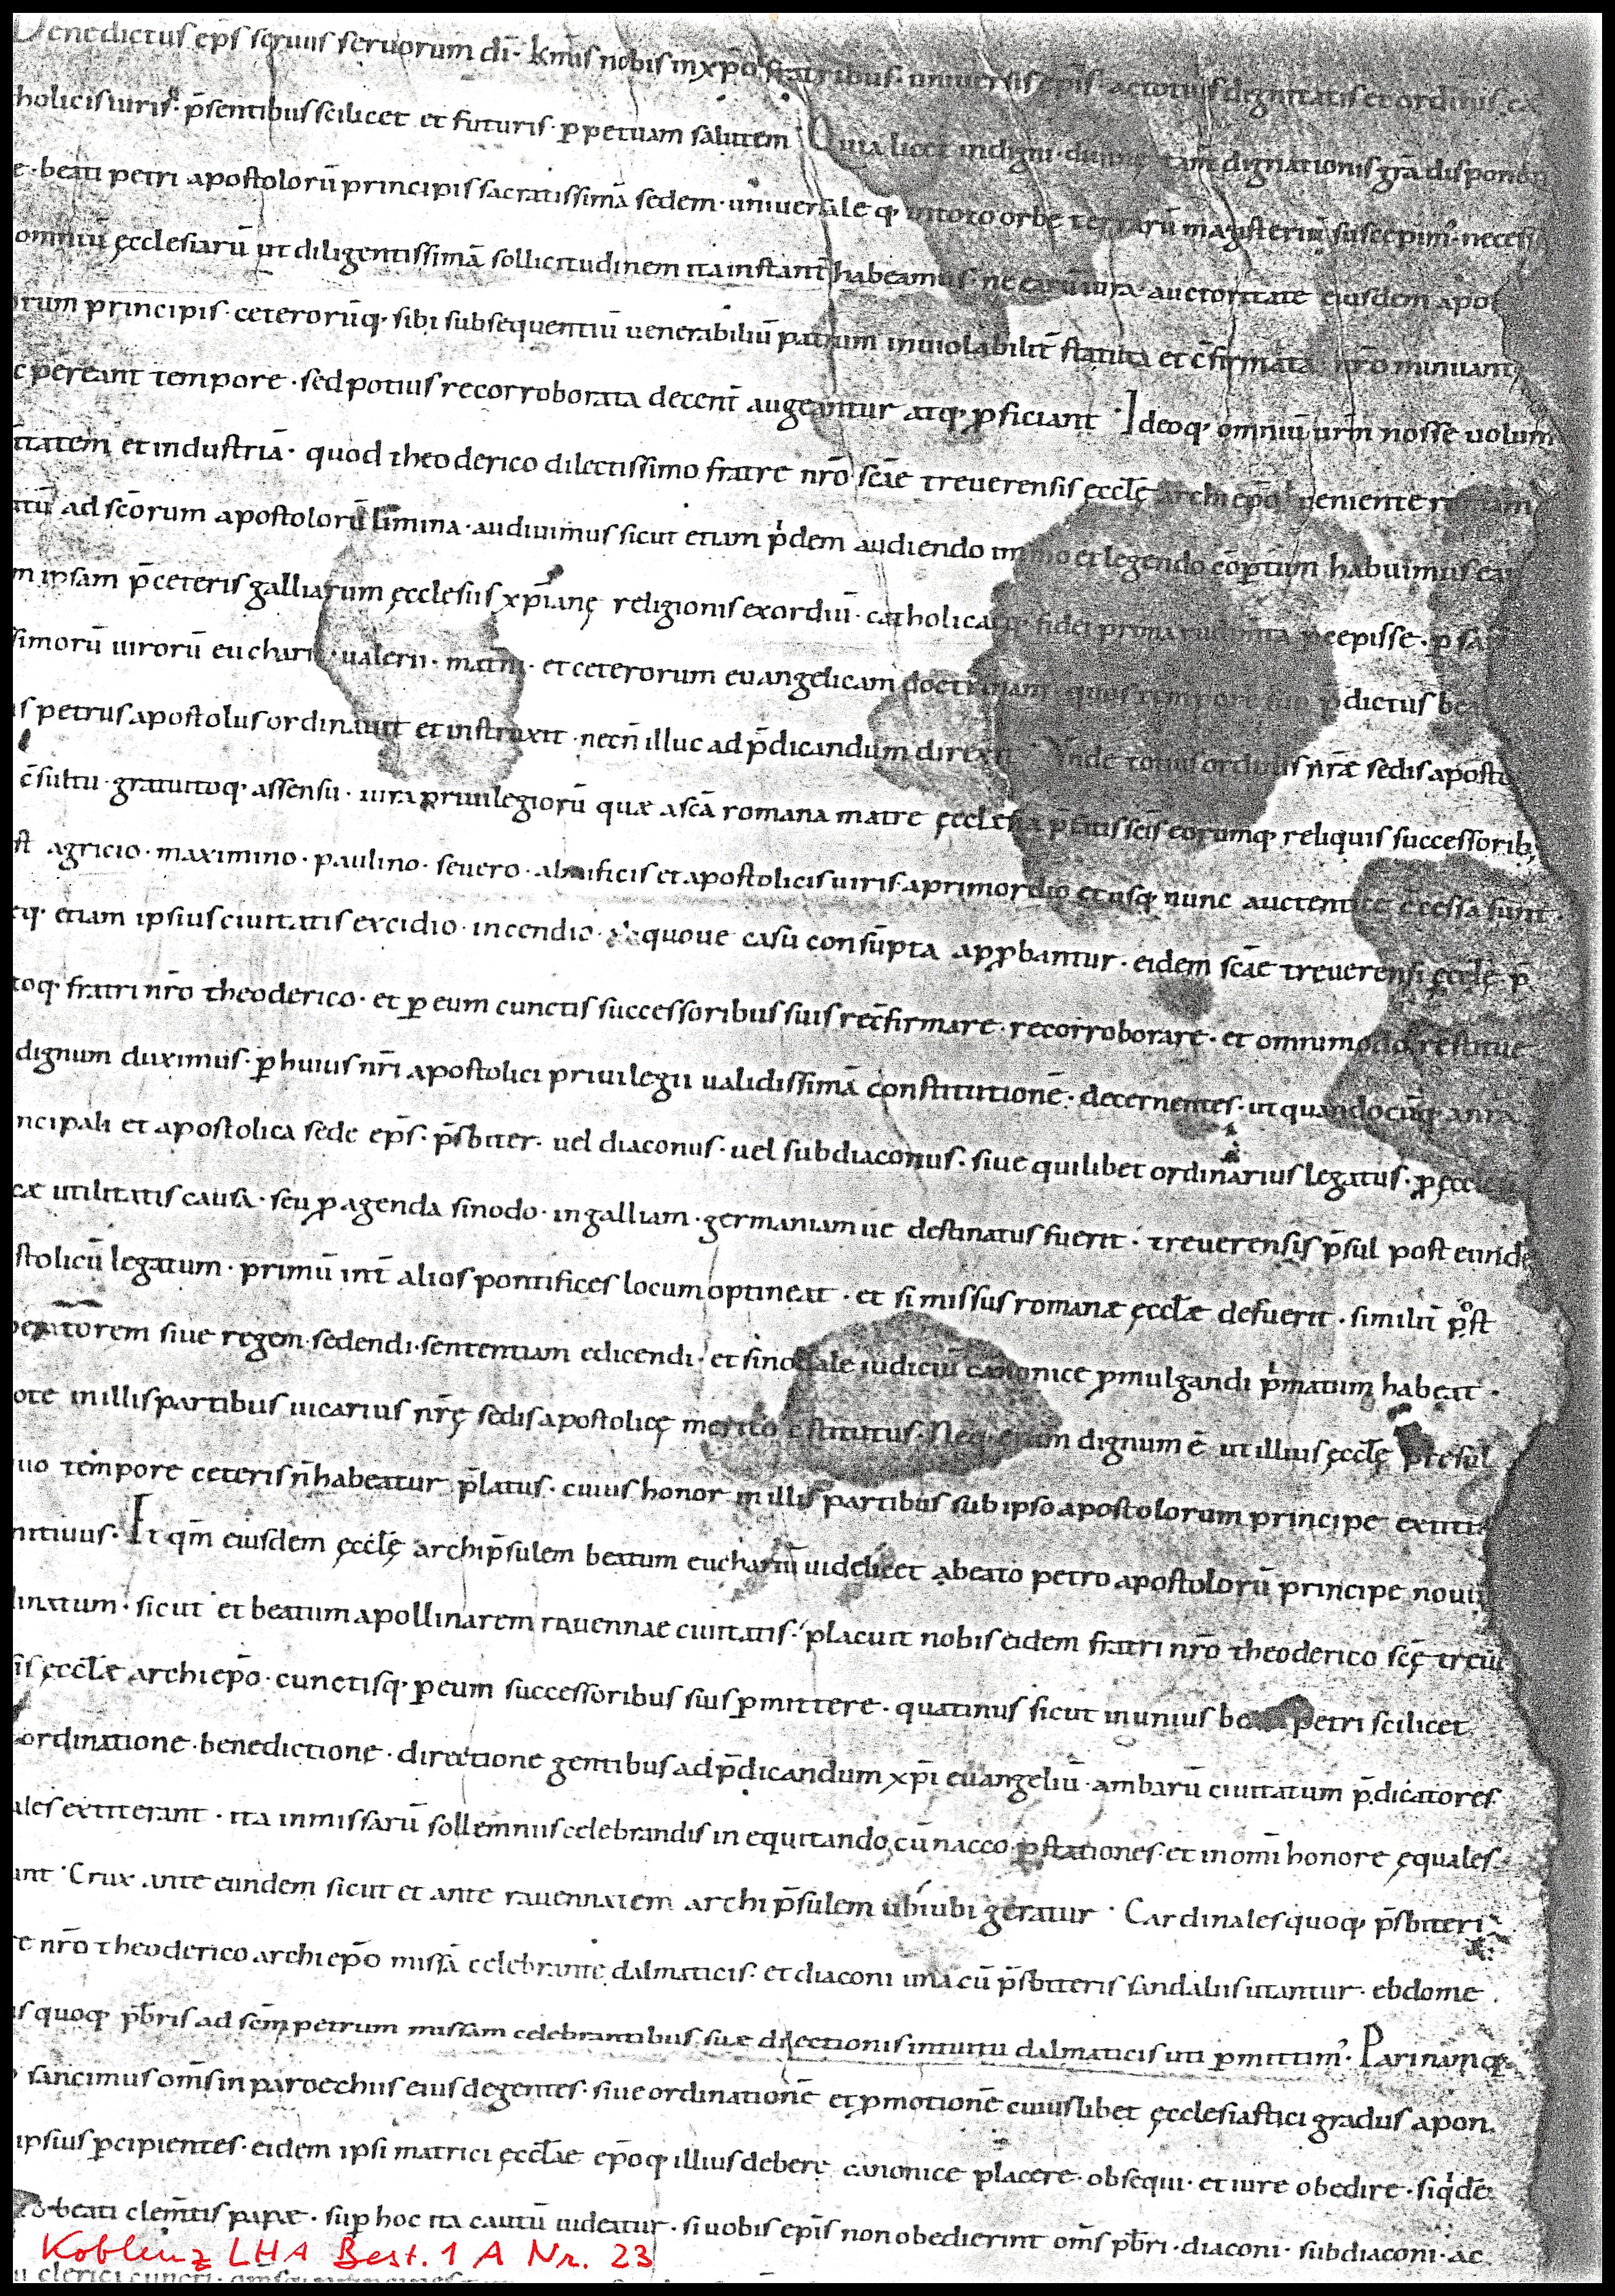 Benedictus ep̄s seruus seruorum dī· kmīs nobis in xp̄o fratribus· uniuersis ep̄is· ac totius dignitatis et ordinis ex
holicis uiris· p̄sentibus scilicet et futuris· ꝑpetuam salutem· Quia licet indigni· diuinę tam̄ dignationis grā̄ disponen
e· beati petri apostolorū principis sacratissimā sedem· uniuersale q; in toto orbe terrarū magisteriū suscepim᾽· necess
omniū ęcclesiarū ut diligentissimā sollicitudinem ita instant̄ habeamus· ne earū iura· auctoritate eiusdem apo
orum principis· ceterorūq; sibi subsequentiū uenerabiliū patrum inuiolabilit̄ statuta et c̄firmata nr̄o minuant
c pereant tempore· sed potius recorroborata decent̄ augeantur atq; ꝓficiant· Ideoq; omniū ur̄m nosse uolum
itatem et industriā· quod theoderico dilectissimo fratre nr̄o sc̄ae treuerensis ęccl̄ę archiep̄o ueniente romam
atū ad sc̄orum apostolorū limina· audiuimus sicut etiam p̄dem audiendo immo et legendo cōꝑtum habuimus ea
m ipsam p̄ ceteris galliarum ęcclesiis xp̄ianę religionis exordiū· catholicaeq; fidei prima rudim̄ta p̄cepisse· ꝑ sa
simorū uirorū euchari· ualerii· matni· et ceterorum euangelicam doctrinam· quos tempore suo p̄dictus bea
us petrus apostolus ordinauit et instruxit· necn̄ illuc ad p̄dicandum direxit· Unde totius ordinis nr̄ae sedis aposto
c̄sultu· gratuitoq; assensu· iura priuilegiorū quae a sc̄a romana matre ęcclesia p̄fatis sc̄is eorumq; reliquis successorib;
st agricio· maximino· paulino· seuero· almificis et apostolicis uiris· a primordio et usq; nunc auctentice c̄cessa sunt·
eq; etiam ipsius ciuitatis excidio· incendio· aliquoue casu consūpta apꝓbantur· eidem sc̄ae treuerensi ęccl̄ę· p̄
toq; fratri nr̄o theoderico· et ꝑ eum cunctis successoribus suis rec̄firmare· recorroborare· et omnimodo restitue
dignum duximus· ꝑ huius nr̄i apostolici priuilegii ualidissimā constitutionē· decernentes· ut quandocūq; a nr̄a
ncipali et apostolica sede ep̄s· p̄sbiter· uel diaconus· uel subdiaconus· siue quilibet ordinarius legatus· ꝓ ęccl
cae utilitatis causa· seu ꝓ agenda sinodo· in galliam· germaniamue destinatus fuerit· treuerensis p̄sul post eundē
stolicū legatum· primū int̄ alios pontifices locum optineat· et si missus romanae ęccl̄ae defuerit· similit̄ post
peratorem siue regem· sedendi· sententiam edicendi· et sinodale iudiciū canonice ꝓmulgandi p̄matum habeat·
ote in illis partibus uicarius nr̄ę sedis apostolicę merito c̄stitutus· Neq; enim dignum ē ut illius ęccl̄ę presul
uo tempore ceteris n̄ habeatur p̄latus· cuius honor in illis partibus sub ipso apostolorum principe extitit
mitiuus· Et qm̄ eiusdem ęccl̄ę archip̄sulem beatum euchariū uidelicet a beato petro apostolorū principe nouim
linatum· sicut et beatum apollinarem rauennae ciuitatis· placuit nobis eidem fratri nr̄o theoderico sc̄ę treuē
sis ęccl̄ae archiep̄o· cunctisq; ꝑ eum successoribus suis ꝑmittere· quatinus sicut in unius beati petri scilicet
ordinatione· benedictione· directione gentibus ad p̄dicandum xp̄i euangeliū· ambarū ciuitatum p̄dicatores
ales extiterant· ita in missarū sollemniis celebrandis in equitando cū nacco ꝑ stationes· et in om̄i honore ęquales
unt· Crux ante eundem sicut et ante rauennatem archip̄sulem ubiubi geratur· Cardinales quoq; p̄sbiteri
re nr̄o theoderico archiep̄o missā celebrante dalmaticis· et diaconi una cū p̄sbiteris sandaliis utantur· ebdome
is quoq; p̄bris ad sc̄m petrum missam celebrantibus suae dilectionis intuitu dalmaticis uti ꝑmittim᾽· Pari namq;
sancimus om̄s in paroechiis eius degentes· siue ordinationē et ꝓmotionē cuiuslibet ęcclesiastici gradus a pon
ipsius ꝑcipientes· eidem ipsi matrici ęccl̄ae ep̄oq; illius debere canonice placere· obsequi· et iure obedire· siqdē
beati clem̄tis papae· suꝑ hoc ita cautū uideatur· si uobis ep̄is non obedierint om̄s p̄bri· diaconi· subdiaconi· ac
Koblenz LHA Best. 1 A Nr. 23
clerici cuncti·